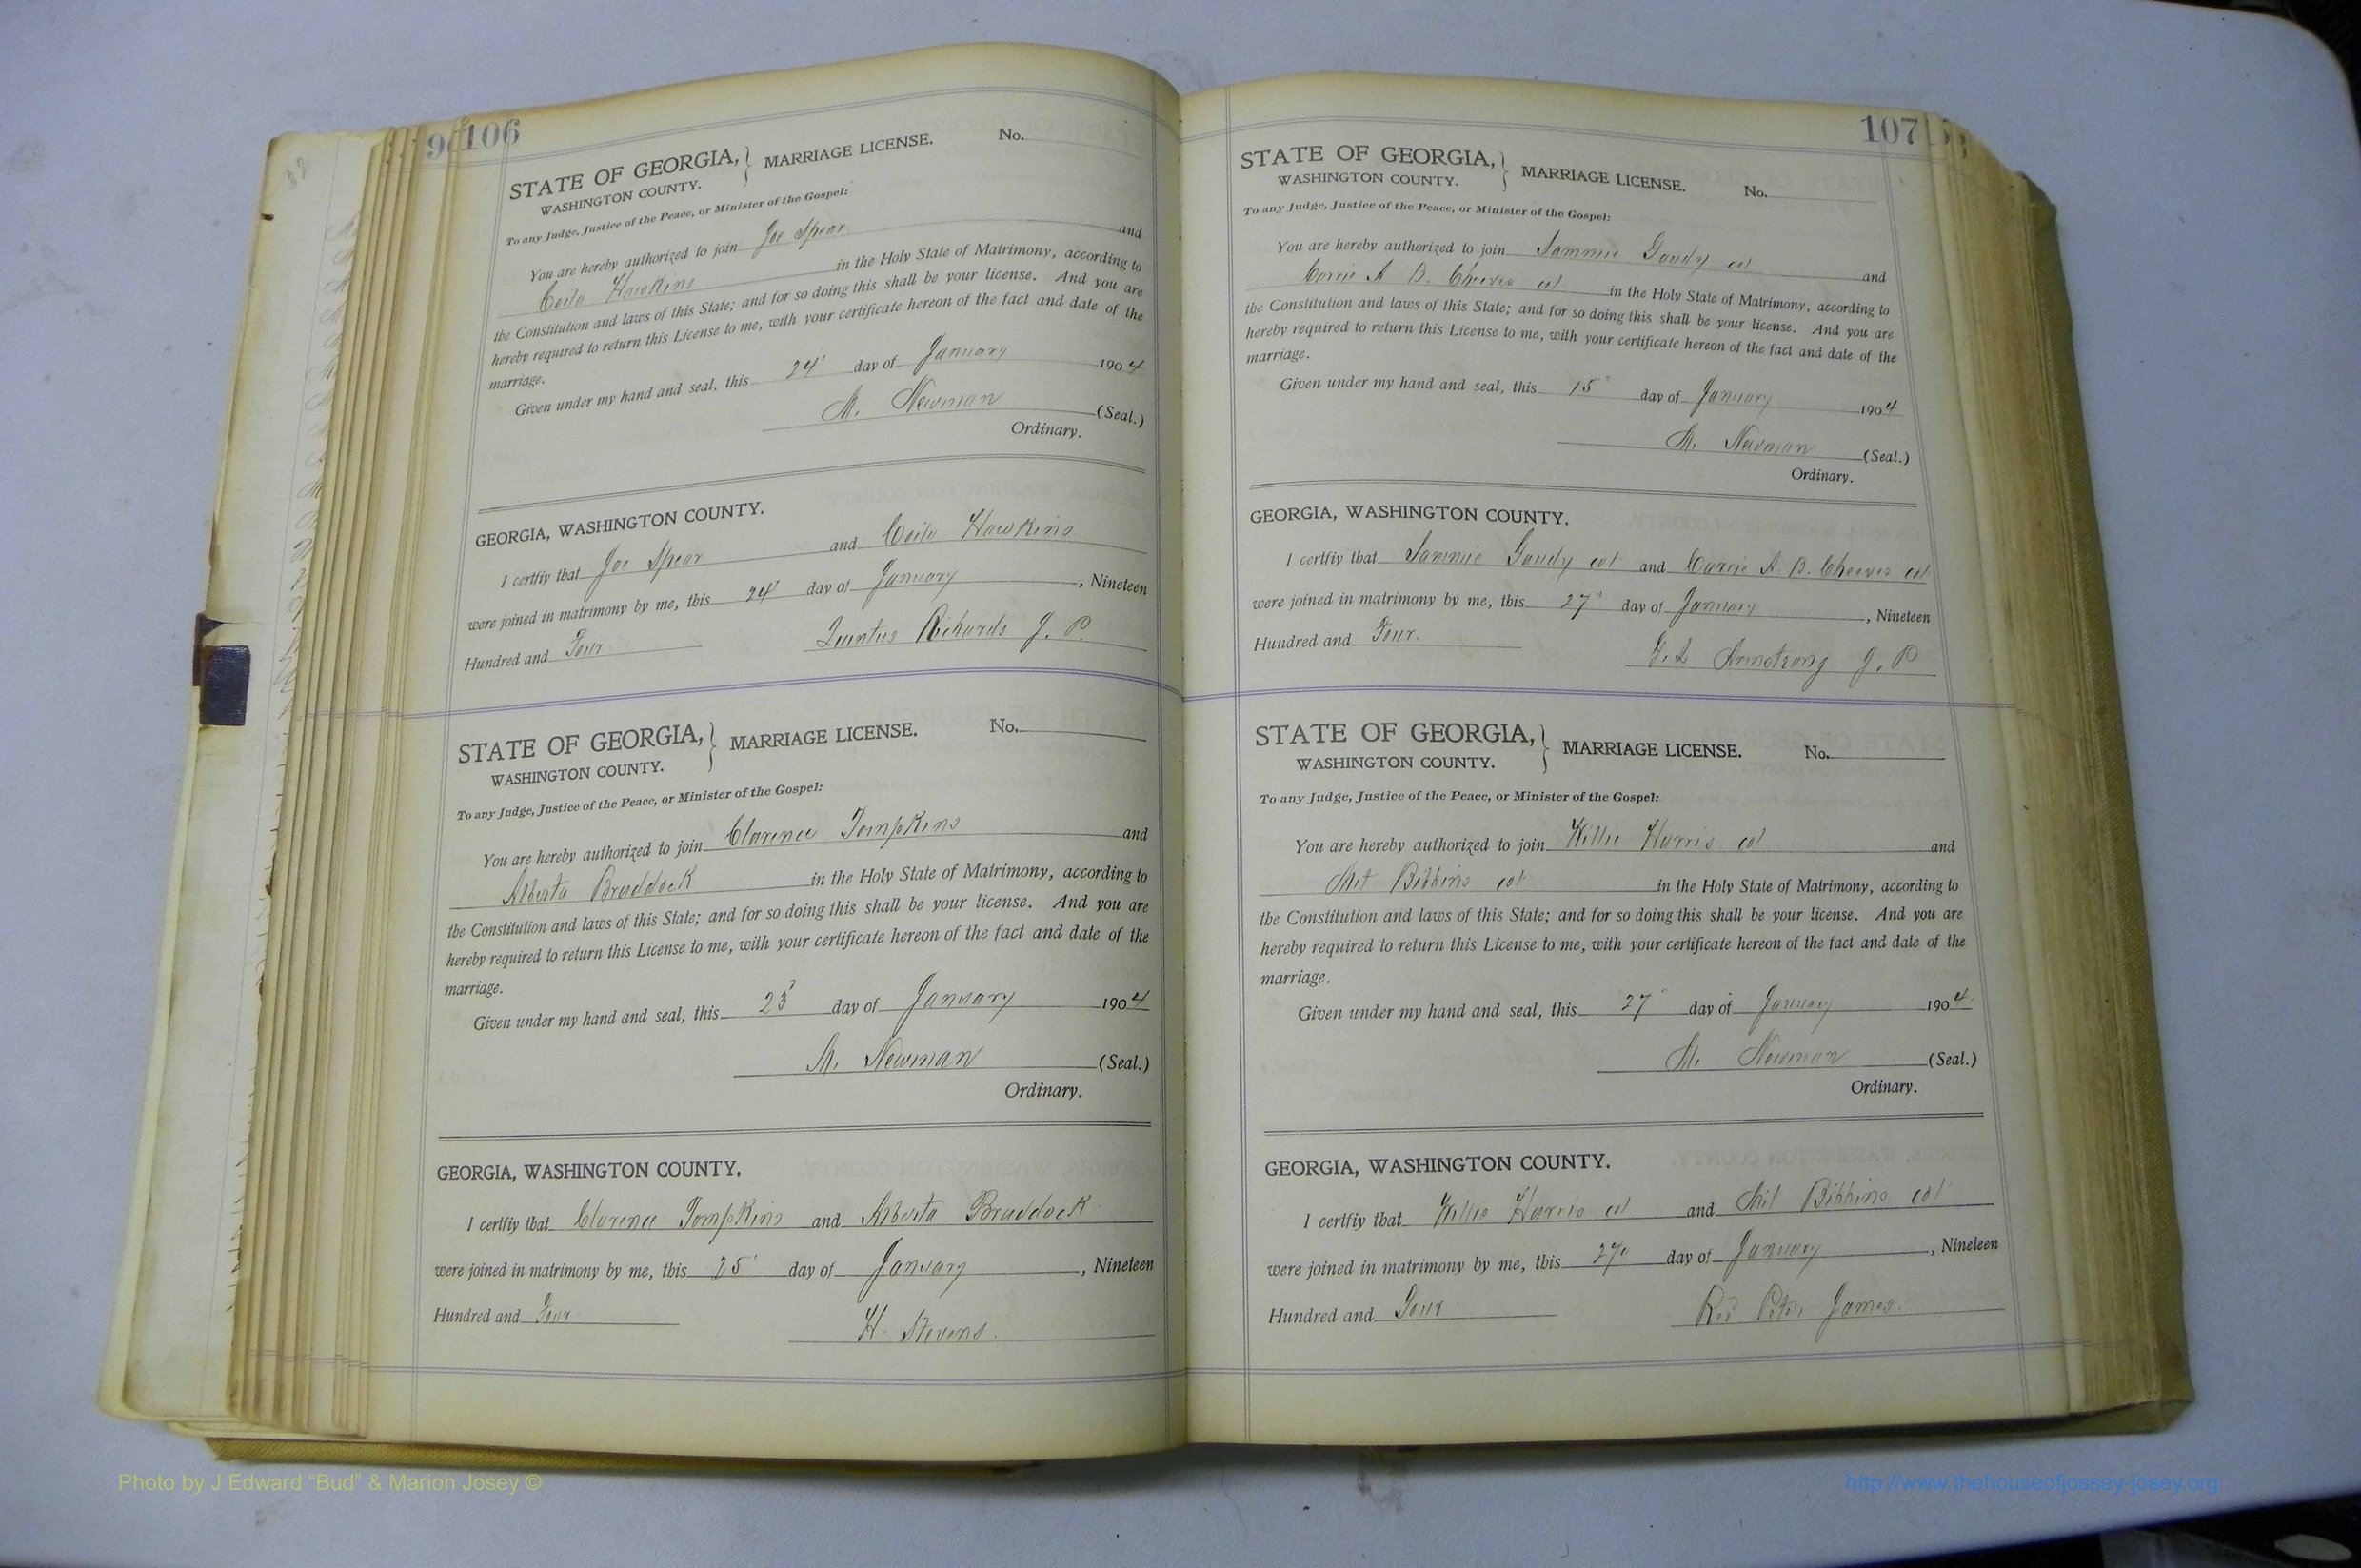 106
STATE OF GEORGIA, MARRIAGE LICENSE. No.
WASHINGTON COUNTY.
To any Judge, Justice of the Peace, or Minister of the Gospel:
You are hereby authorized to join Joe Spear and
Ceila Hawkins in the Holy State of Matrimony, according to
the Constitution and laws of this State; and for so doing this shall be your license. And you are
hereby required to return this License to me, with your certificate hereon of the fact and date of the
marriage.
Given under my hand and seal, this 24' day of January 1904
M. Newman (Seal.)
Ordinary.
GEORGIA, WASHINGTON COUNTY.
I certfiy that Joe Spear and Ceila Hawkins
were joined in matrimony by me, this 24' day of January, Nineteen
Hundred and Four. Quintus Richards J. P.
STATE OF GEORGIA, MARRIAGE LICENSE. No.
WASHINGTON COUNTY.
To any Judge, Justice of the Peace, or Minister of the Gospel:
You are hereby authorized to join Clarence Tompkins and
Alberta Braddock in the Holy State of Matrimony, according to
the Constitution and laws of this State; and for so doing this shall be your license. And you are
hereby required to return this License to me, with your certificate hereon of the fact and date of the
marriage.
Given under my hand and seal, this 23 day of January 1904
M. Newman (Seal.)
Ordinary.
GEORGIA, WASHINGTON COUNTY.
I certfiy that Clarence Tompkins and Alberta Braddock
were joined in matrimony by me, this 25' day of January, Nineteen
Hundred and Four. H. Stevens.
107
STATE OF GEORGIA, MARRIAGE LICENSE. No.
WASHINGTON COUNTY.
To any Judge, Justice of the Peace, or Minister of the Gospel:
You are hereby authorized to join Sammie Gaudy col and
Carrie A B. Cheeves col in the Holy State of Matrimony, according to
the Constitution and laws of this State; and for so doing this shall be your license. And you are
hereby required to return this License to me, with your certificate hereon of the fact and date of the
marriage.
Given under my hand and seal, this 15' day of January 1904
M. Newman (Seal.)
Ordinary.
GEORGIA, WASHINGTON COUNTY.
I certfiy that Sammie Gaudy col and Carrie A. B. Cheeves col
were joined in matrimony by me, this 27' day of January, Nineteen
Hundred and Four. Armstrong J. P
STATE OF GEORGIA, MARRIAGE LICENSE. No.
WASHINGTON COUNTY.
To any Judge, Justice of the Peace, or Minister of the Gospel:
You are hereby authorized to join Willie Harris col and
Bibbins col in the Holy State of Matrimony, according to
the Constitution and laws of this State; and for so doing this shall be your license. And you are
hereby required to return this License to me, with your certificate hereon of the fact and date of the
marriage.
Given under my hand and seal, this 27 day of January 1904
M. Newman (Seal.)
Ordinary.
GEORGIA, WASHINGTON COUNTY.
I certfiy that Willie Harris col and Bibbins col
were joined in matrimony by me, this 27 day of January, Nineteen
Hundred and Four Rev Peter James.
Photo by J Edward "Bud" & Marion Josey ©
http://www.thehouseofjossey-josey.org